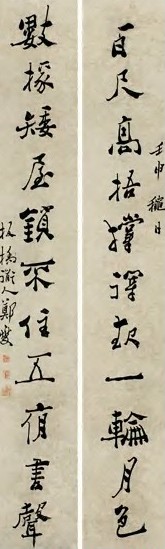 百尺高梧撐得起一輪月色
壬申穐日
數椽矮屋鎖不住五夜書聲
板橋道人鄭燮